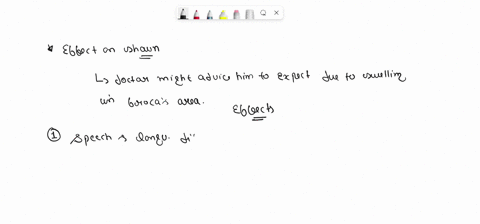 * Effect on shaun
↳ doctor might advice him to expect due to swelling
in broca's area.
Effects
① Speech & langu. di